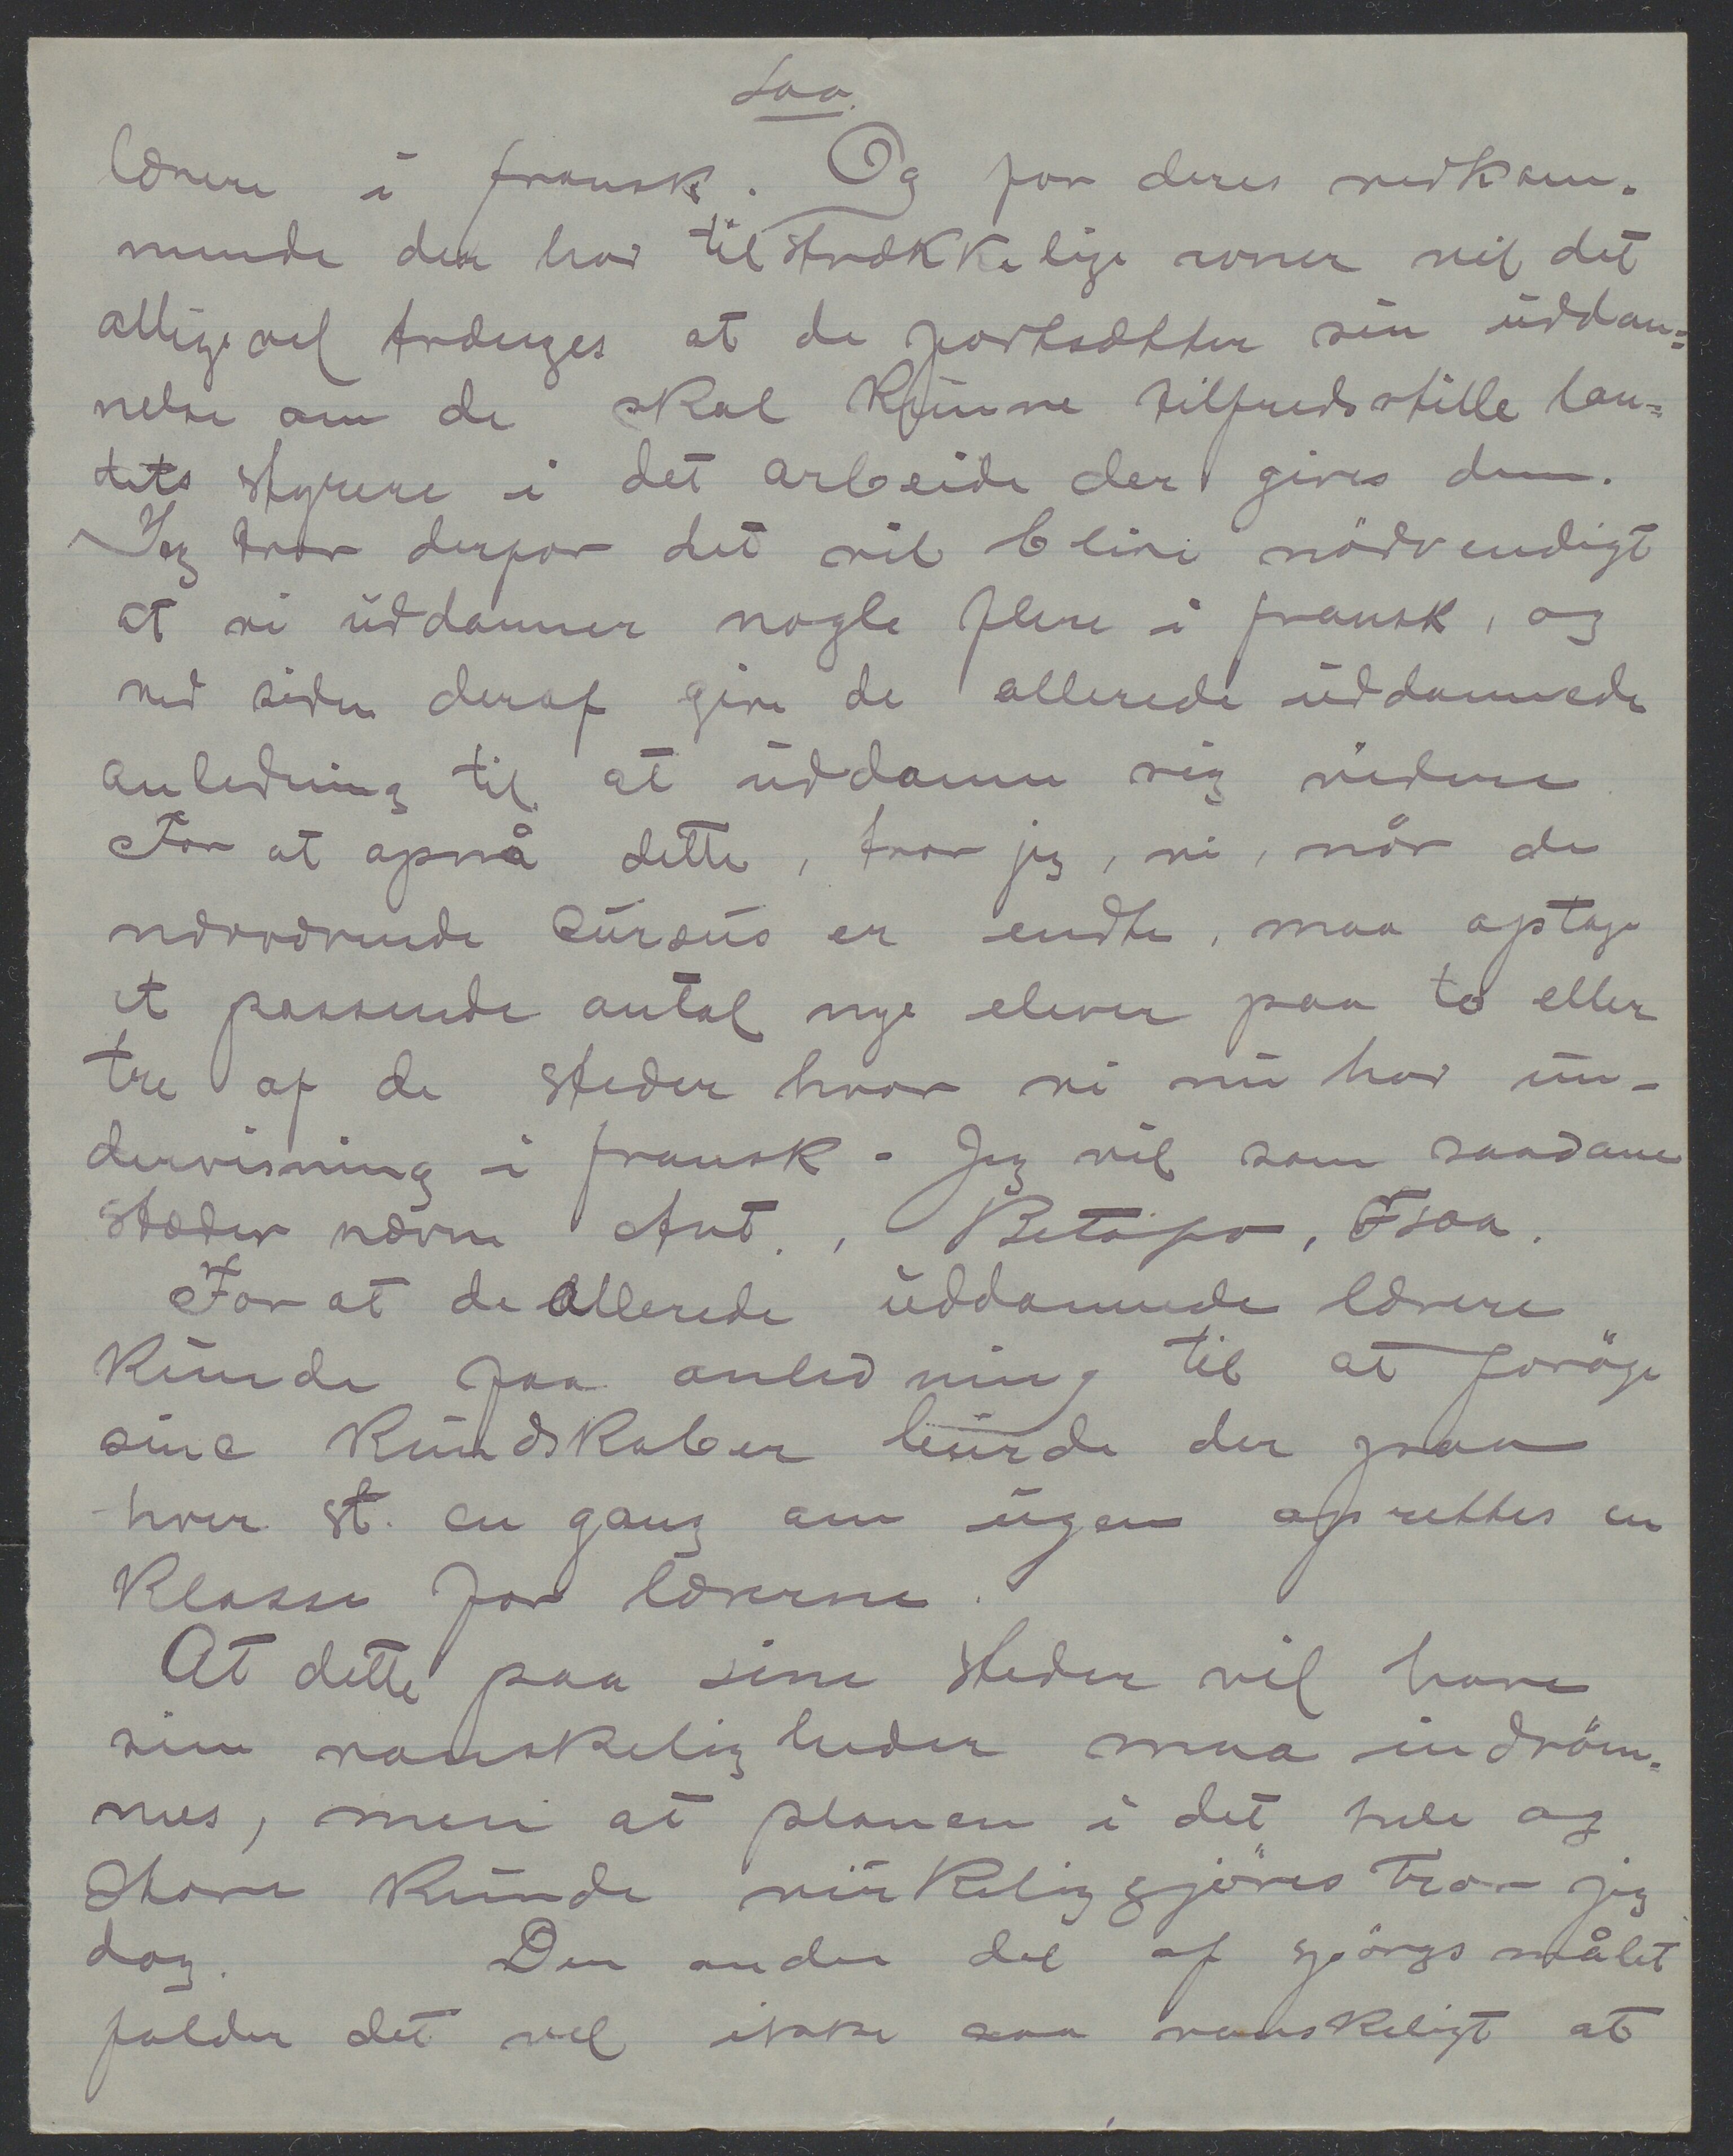 Lærere i fransk. Og for deres vedkom-
mende der har tilstrækkelige evner vil det
alligevel trænges at de fortsætter sin uddan=
nelse om de skal kunne tilfredsstille lan=
dets styrere i det arbeide der gives dem.
Jeg tror derfor det vil blive nödvendigt
at vi uddanner nogle flere i fransk, og
ved siden deraf give de allerede uddannede
anledning til at uddanne sig videre
For at opnå dette, tror jeg, vi, når de
nærværende Cursus er endte, maa optage
et passende antal nye elever paa to eller
tre af de steder hvor vi nu har un-
dervisning i fransk - Jeg vil som saadanne
stæder nævne Ant., Betafo, Fsoa.
For at de allerede uddannede lærere
kunde faa anledning til at foröge
sine kundskaber burde der paa
hver st. en gang om ugen oprettes en
klasse for lærerne.
At dette paa sine steder vil have
sine vanskeligheder maa indröm-
mes, men at planen i det hele og
store kunde virkeliggjöres tror jeg
dog. Den anden del af spörgsmålet
falder det vel ikke saa vanskeligt at